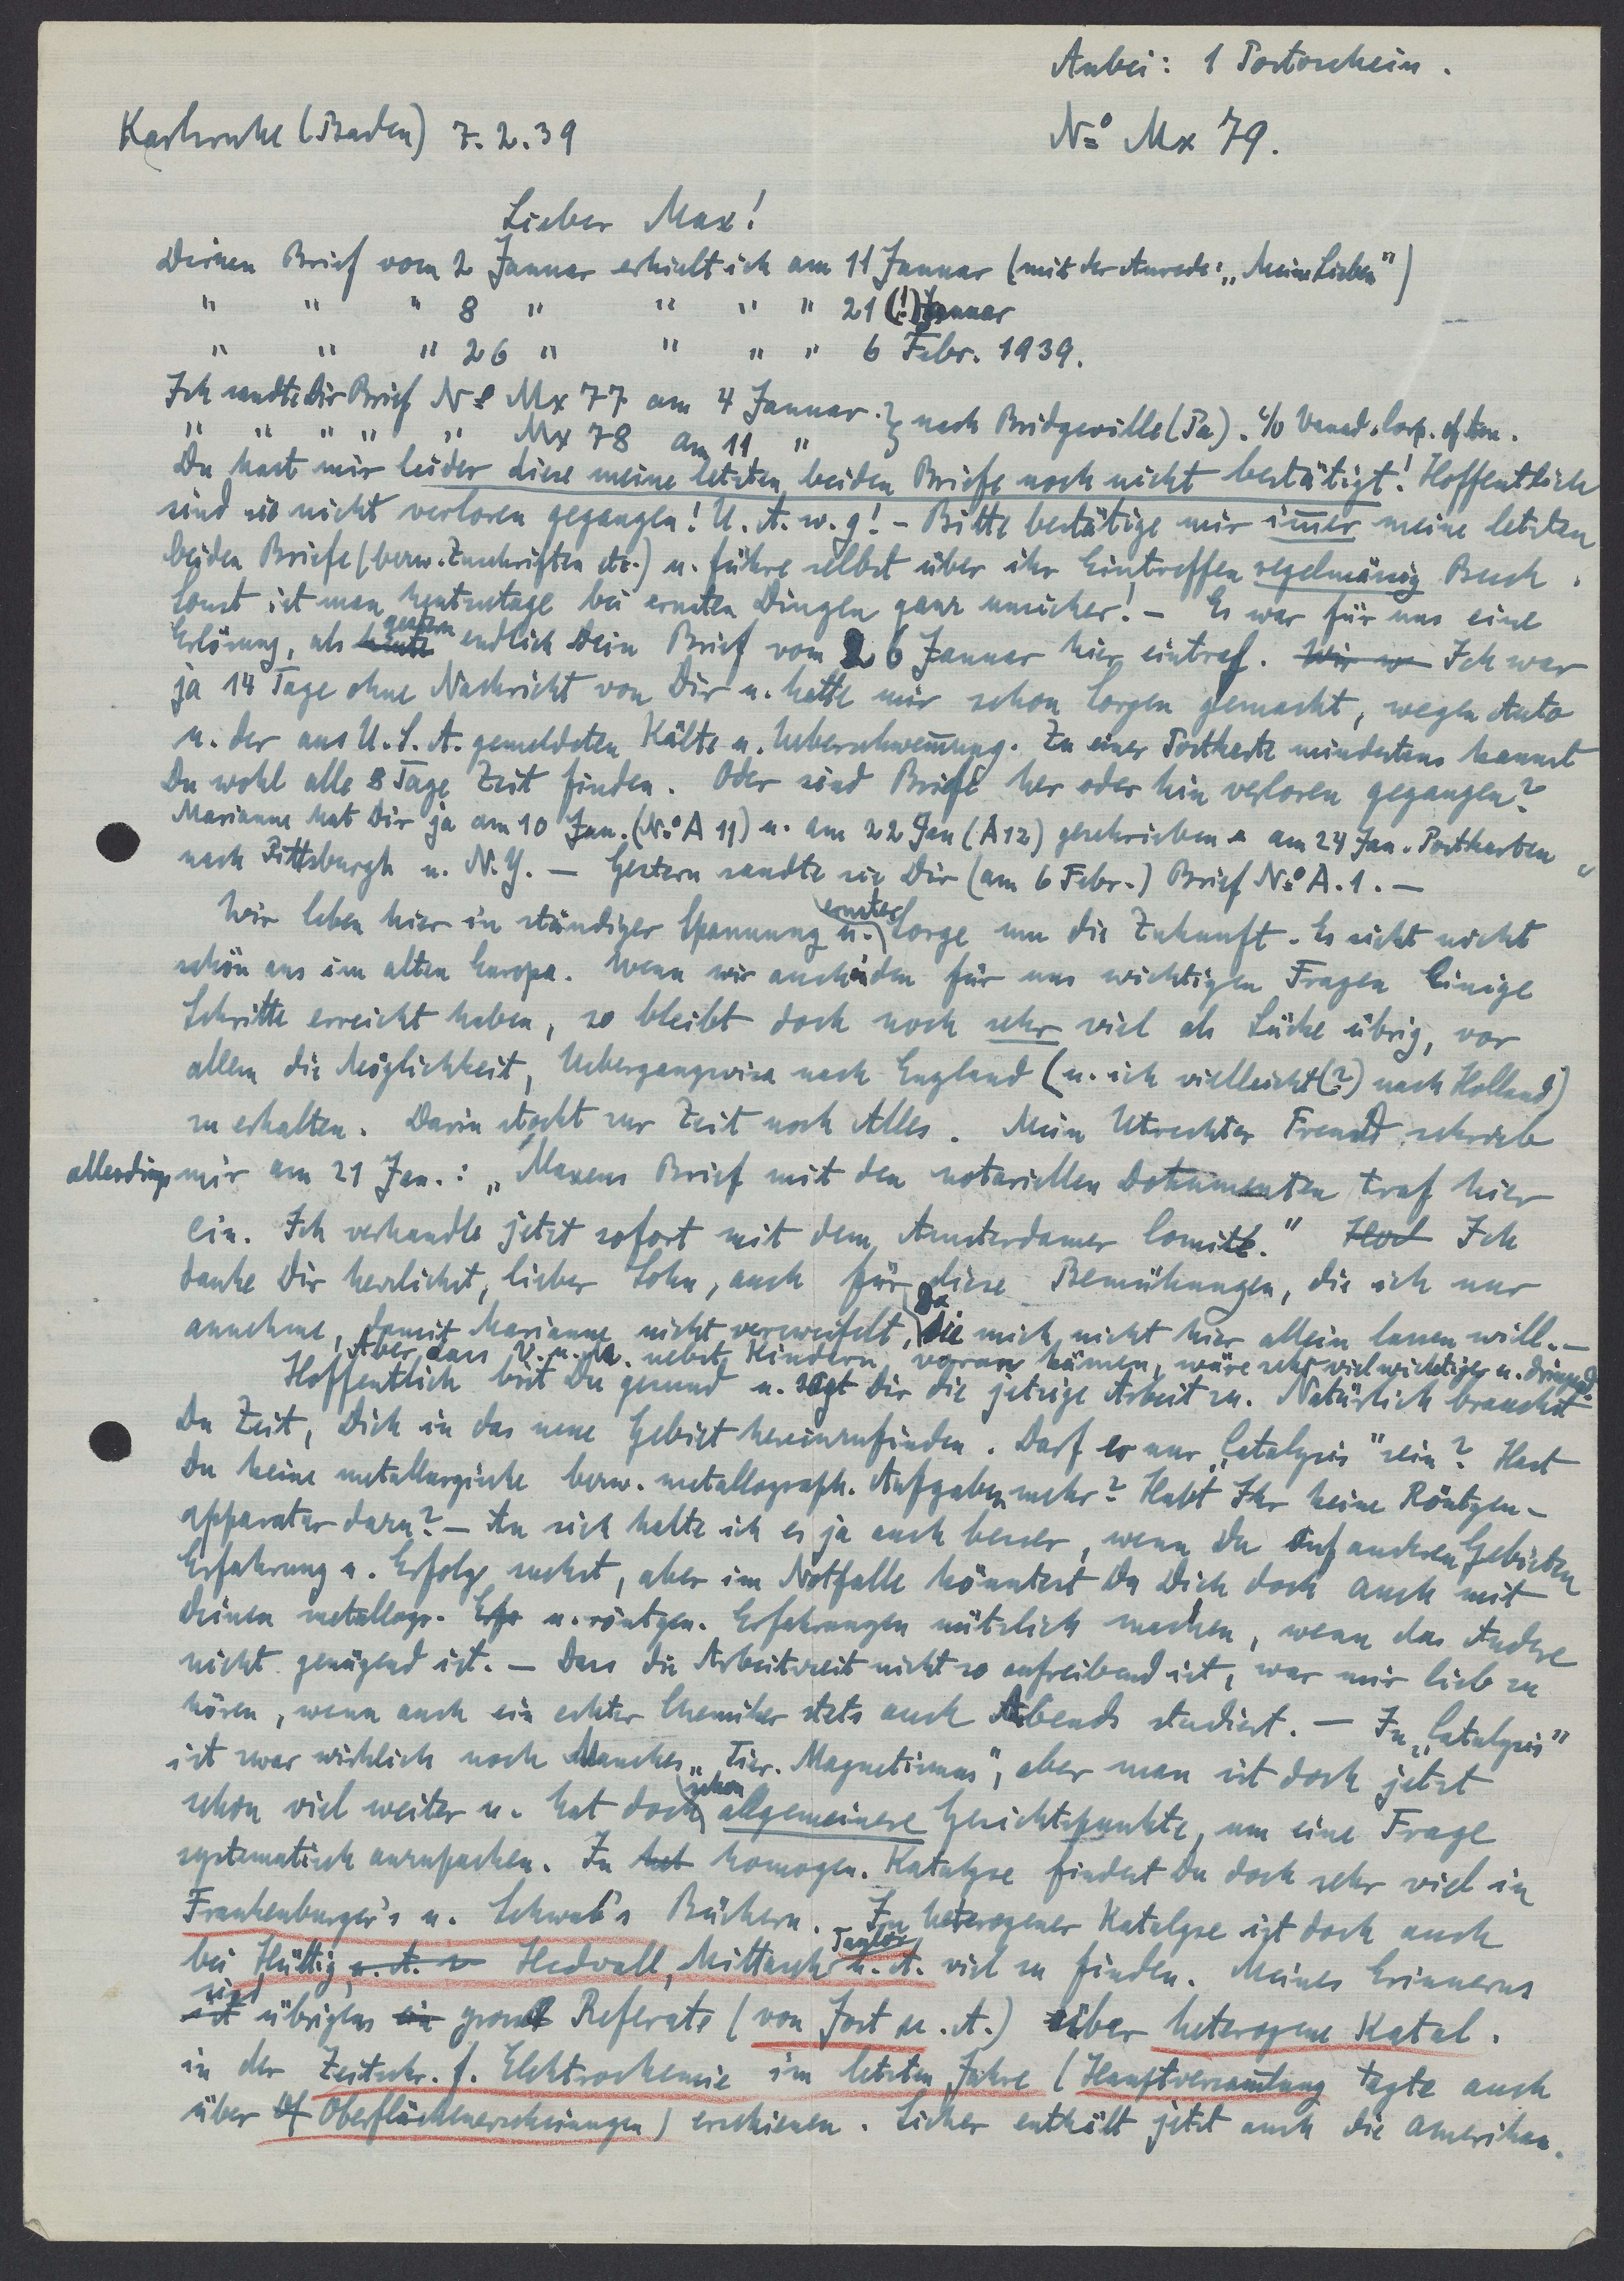 Anbei: 1 Portoschein.
Karlsruhe (Baden) 7.2.39
No Mx 79.
Lieber Max!
Deinen Brief vom 2 Januar erhielt ich am 11 Januar (mit der Anrede: „Meine Lieben")
" " " 8 " " " " 21 (!) Januar
" " " 26 " " " " 6 Febr. 1939.
Ich sandte Dir Brief No Mx 77 am 4 Januar. } nach Bridgeville (Pa). c/o Vanad. Corp. of Am.
" " " " " Mx 78 am 11 "
Du hast mir leider diese meine letzten beiden Briefe noch nicht bestätigt! Hoffentlich
sind sie nicht verloren gegangen! U. A. w. g! – Bitte bestätige mir im̅er meine letzten
beiden Briefe (bezw. Zuschriften etc.) u. führe selbst über ihr Eintreffen regelmässig Buch.
Sonst ist man heutzutage bei ernsten Dingen ganz unsicher! – Es war für uns eine
Erlösung, als heute gestern endlich Dein Brief vom 26 Januar hier eintraf. Wir w Ich war
ja 14 Tage ohne Nachricht von Dir u. hatte mir schon Sorgen gemacht, wegen Auto
u. der aus U.S.A. gemeldeten Kälte u. Ueberschwem̅ung. Zu einer Postkarte mindestens kannst
Du wohl alle 8 Tage Zeit finden. Oder sind Briefe her oder hin verloren gegangen?
Marianne hat Dir ja am 10 Jan. (No A 11) u. am 22 Jan (A 12) geschrieben u am 24 Jan. Postkarten
nach Pittsburgh u. N.Y. – Gestern sandte sie Dir (am 6 Febr.) Brief No A. 1. –
Wir leben hier in ständiger Spannung u. ernster Sorge um die Zukunft. Es sieht nicht
schön aus im alten Europa. Wenn wir auch in den für uns wichtigen Fragen Einige
Schritte erreicht haben, so bleibt doch noch sehr viel als Lücke übrig, vor
allem die Möglichkeit, Uebergangsvisa nach England (u. ich vielleicht (?) nach Holland)
zu erhalten. Darin stockt zur Zeit noch Alles. Mein Utrechter Freund schrieb
allerdings mir am 21 Jan.: „Maxens Brief mit den notariellen Dokumenten traf hier
ein. Ich verhandle jetzt sofort mit dem Amsterdamer Comité." Ich
danke Dir herzlichst, lieber Sohn, auch für diese Bemühungen, die ich nur
annehme, damit Marianne nicht verzweifelt, da die mich nicht hier allein lassen will. –
Aber dass V. u. A. nebst Kindern voran kämen, wäre sehr viel wichtiger u. dringend.
Hoffentlich bist Du gesund u. sagt Dir die jetzige Arbeit zu. Natürlich brauchst
Du Zeit, Dich in das neue Gebiet hereinzufinden. Darf es nur „Catalysis" sein? Hast
Du keine metallurgische bezw. metallograph. Aufgaben mehr? Habt Ihr keine Röntgen-
apparatur dazu? – An sich halte ich es ja auch besser, wenn Du auf anderen Gebieten
Erfahrung u. Erfolge suchst, aber im Notfalle könntest Du Dich doch auch mit
Deinen metallogr. Erfr u. röntgen. Erfahrungen nützlich machen, wenn das Andere
nicht genügend ist. – Dass die Arbeitszeit nicht so aufreibend ist, war mir lieb zu
hören, wenn auch ein echter Chemiker stets auch Abends studiert. – In „Catalysis"
ist zwar wirklich noch Manches „Tier. Magnetismus", aber man ist doch jetzt
schon viel weiter u. hat doch schon allgemeinere Gesichtspunkte, um eine Frage
systematisch anzupacken. In het homogen. Katalyse findest Du doch sehr viel in
Frankenburger's u. Schwab's Büchern. In heterogener Katalyse ist doch auch
bei Hüttig, u. A. Hedvall, Mittasch Taylor u. A. viel zu finden. Meines Erinnerns
ist sind übrigens ein grosse Referate (von Jost u. A.) über heterogene Katal.
in der Zeitschr. f. Elektrochemie im letzten Jahre (Hauptversam̅lung tagte auch
über Oberflächenerscheinungen) erschienen. Sicher enthält jetzt auch die Amerikan.